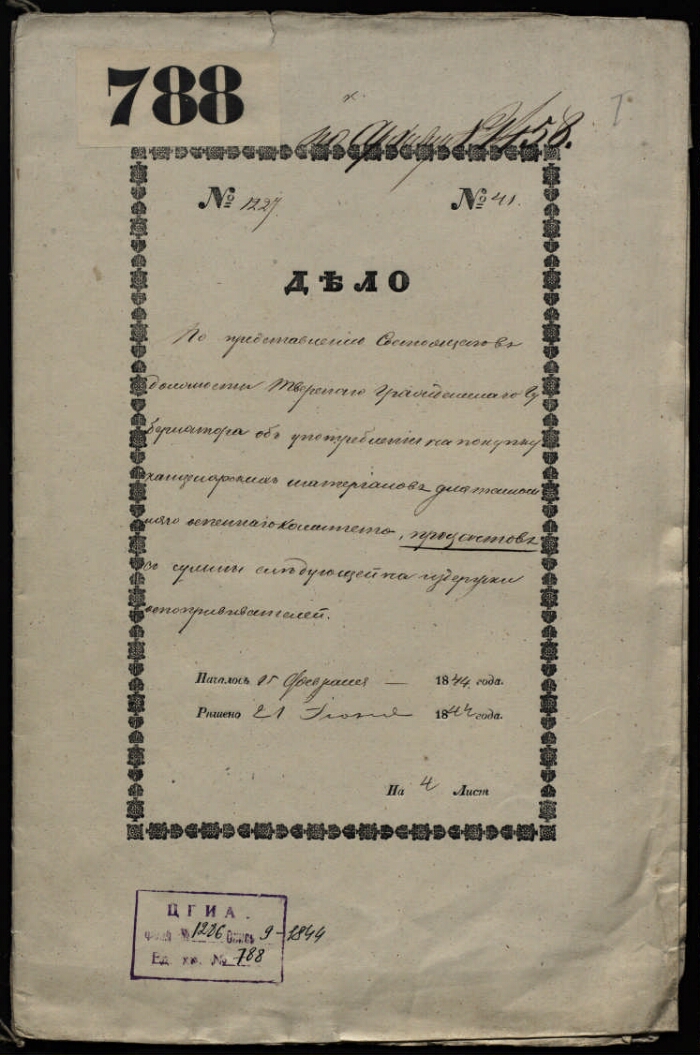 788
по Архиву № 1458.
№ 1227. № 41.
ДѢЛО
По представленію Состоящаго въ
должности Тверскаго Гражданскаго Гу
бернатора объ употребленіи на покупку
канцелярскихъ матеріаловъ для тамош
няго оспеннаго комитета, процентовъ
со суммы слѣдующей на издержки
оспопрививателей.
Началось 15 Февраля — 1844 года.
Рѣшено 21 Іюня 1844 года.
На 4 Лист
ЦГИА.
Фонд № 1286 Опись 9-1844
Ед. хр. № 788